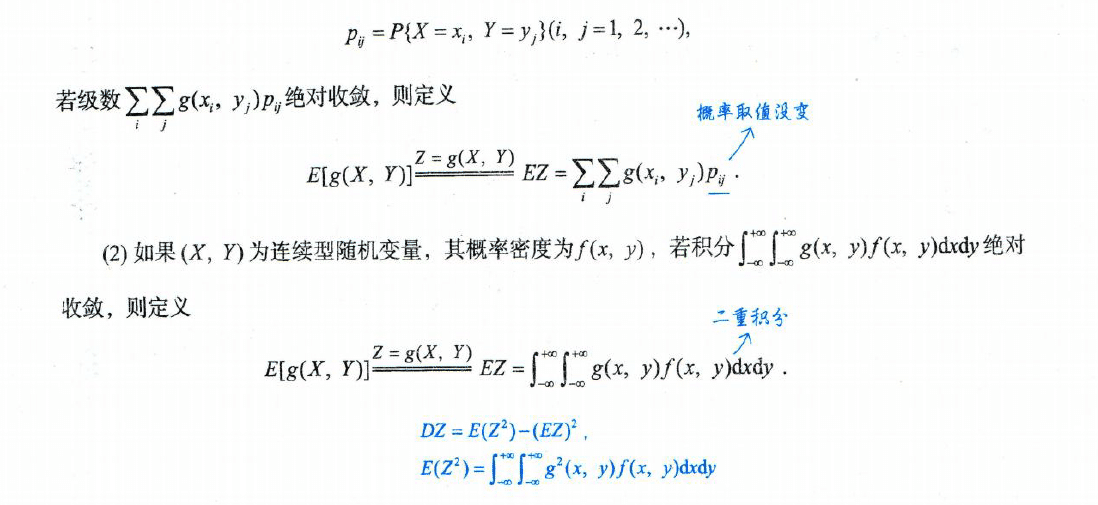 p_{ij} = P{X = x_i, Y = y_j}(i, j = 1, 2, ⋯),
若级数∑_i∑_j g(x_i, y_j)p_{ij}绝对收敛，则定义
概率取值没变
E[g(X, Y)] \xlongequal{Z = g(X, Y)} EZ = ∑_i∑_j g(x_i, y_j)p_{ij}.
(2) 如果(X, Y)为连续型随机变量，其概率密度为f(x, y)，若积分∫_{-∞}^{+∞}∫_{-∞}^{+∞} g(x, y)f(x, y)dxdy绝对
收敛，则定义
二重积分
E[g(X, Y)] \xlongequal{Z = g(X, Y)} EZ = ∫_{-∞}^{+∞}∫_{-∞}^{+∞} g(x, y)f(x, y)dxdy.
DZ = E(Z²)-(EZ)²,
E(Z²) = ∫_{-∞}^{+∞}∫_{-∞}^{+∞} g²(x, y)f(x, y)dxdy